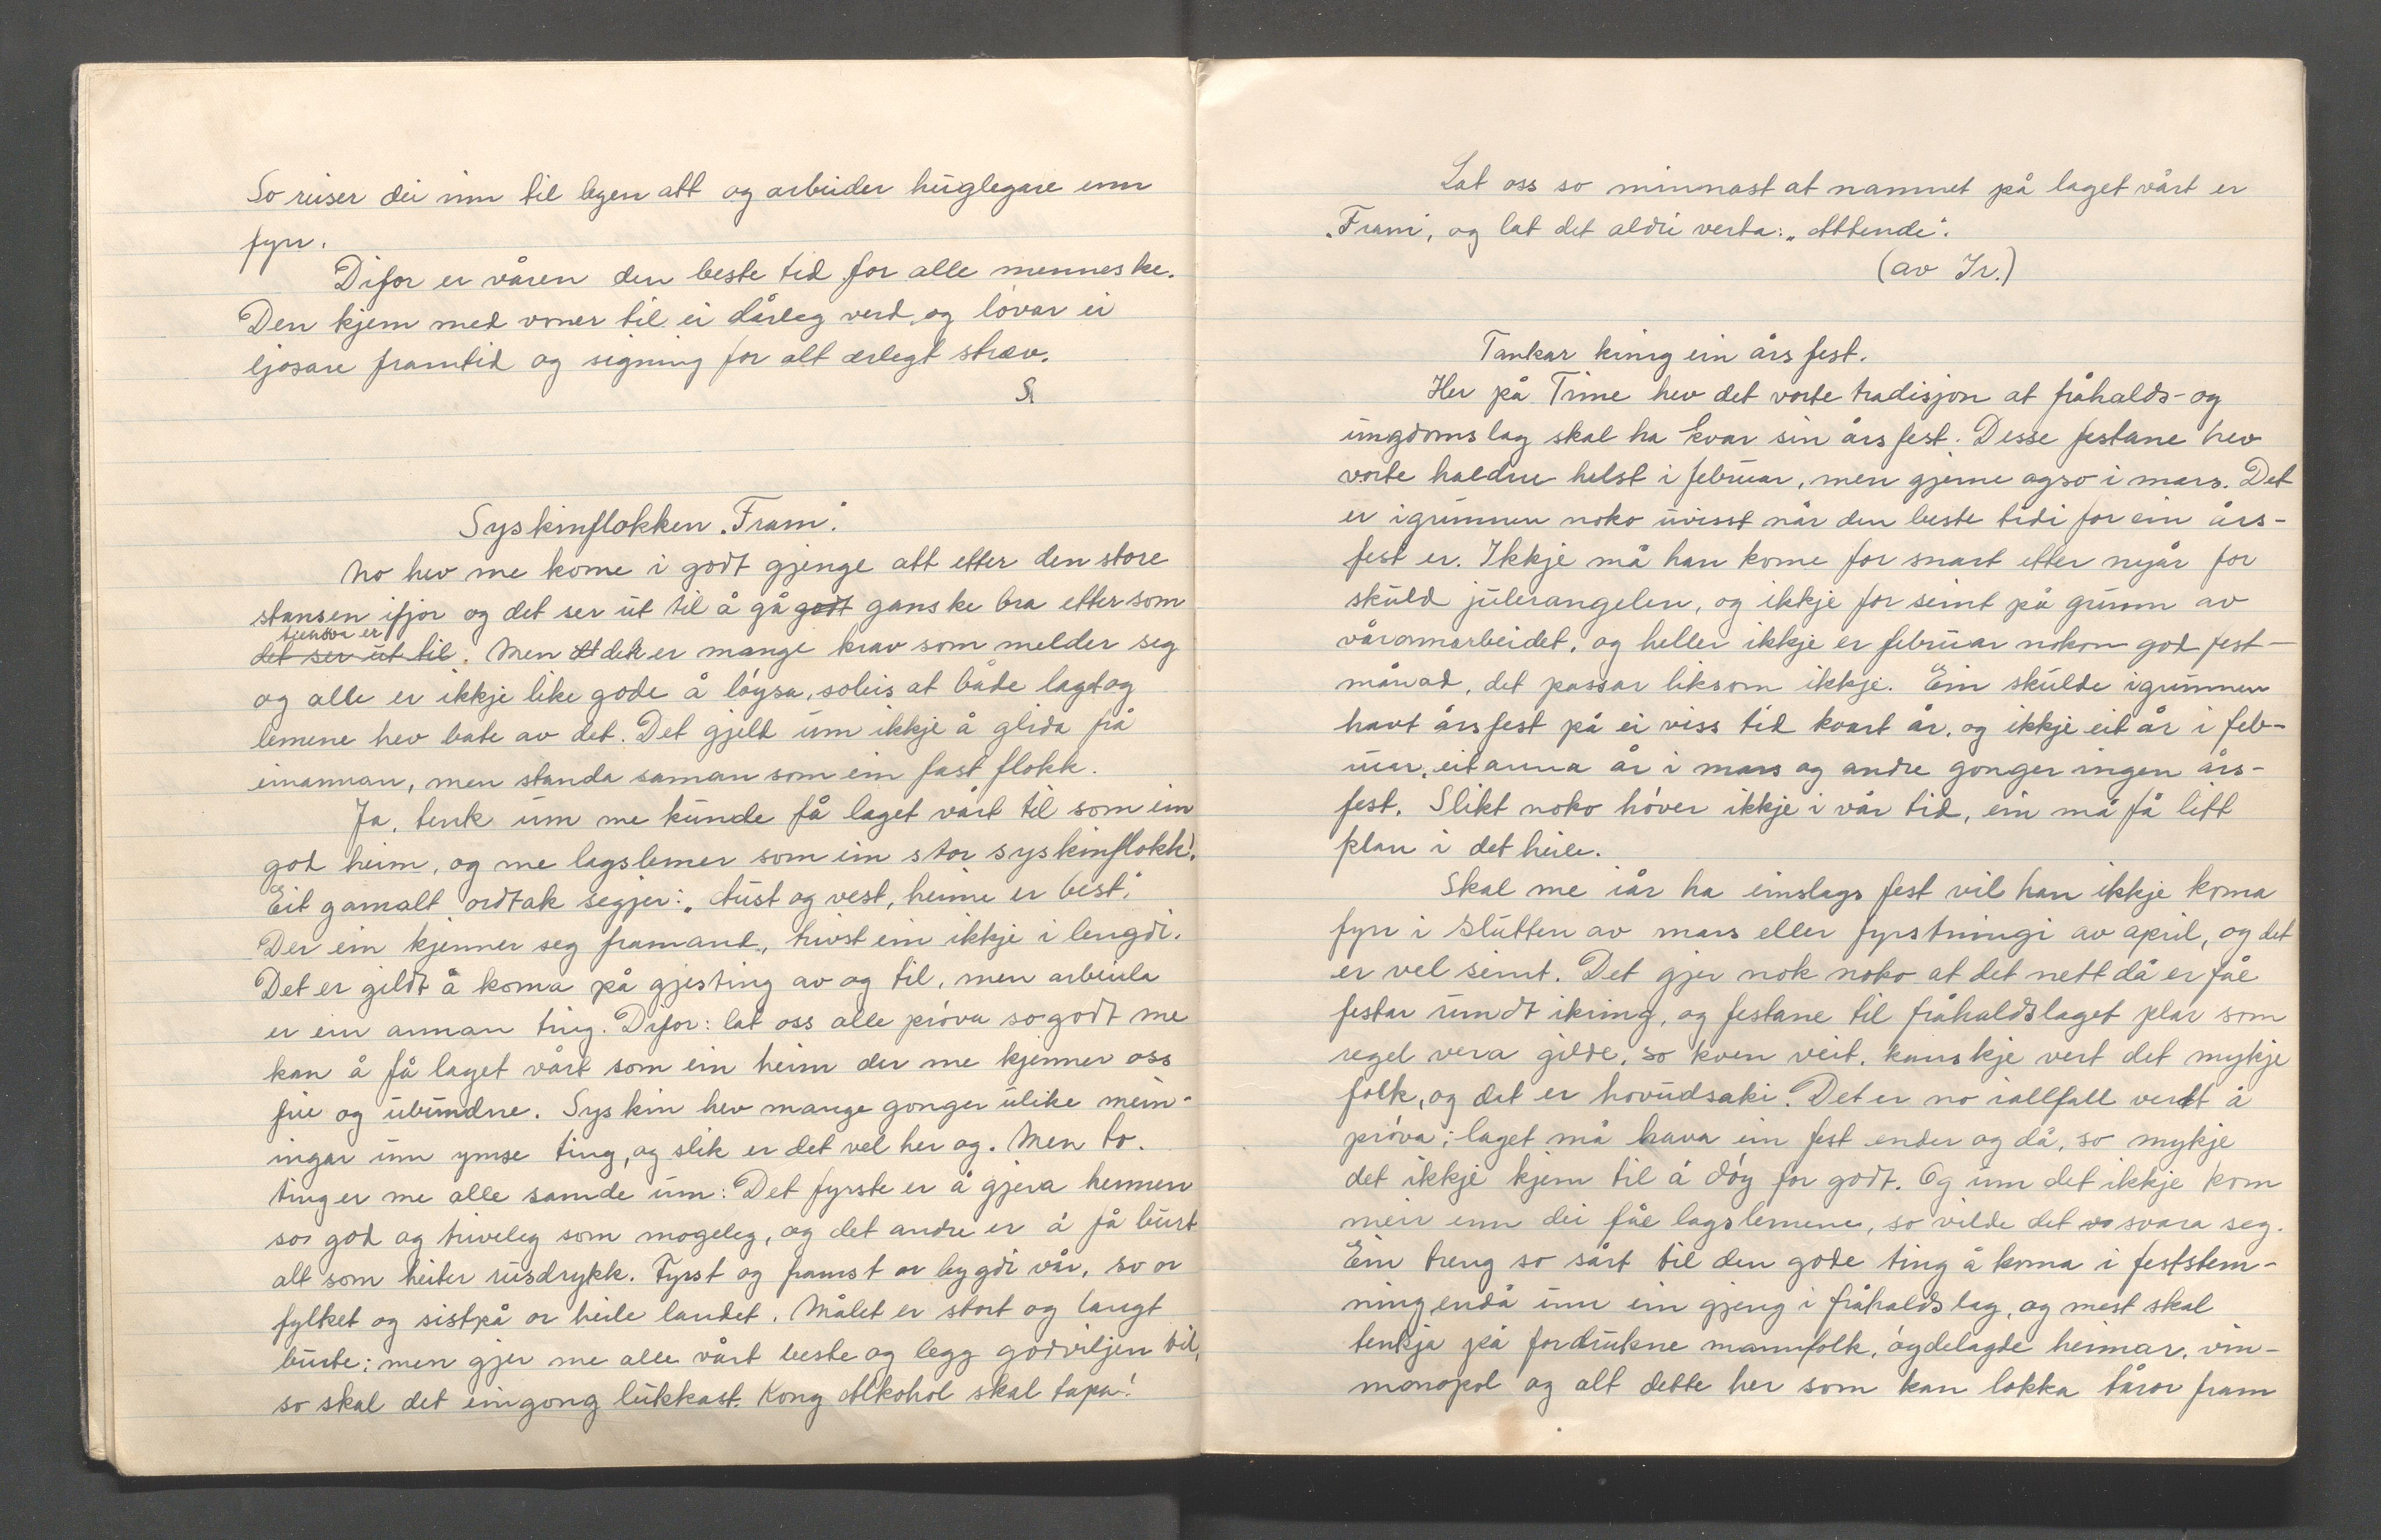 So reiser dei inn til byen att og arbeider huglegare enn
fyrr.
Difor er våren den beste tid for alle menneske.
Den kjem med voner til ei dårleg verd og lovar ei
ljosare framtid og signing for alt ærlegt stræv.
S.
Syskinflokken „Fram".
No hev me kome i godt gjenge att etter den store
stansen ifjor og det ser ut til å gå godt ganske bra etter som
tilhøva er
det ser ut til. Men det er mange krav som melder seg
og alle er ikkje like gode å løysa, soleis at både laget og
lemene hev bate av det. Det gjeld um ikkje å glida frå
einannan, men standa saman som ein fast flokk.
Ja, tenk um me kunde få laget vårt til som ein
god heim, og me lagslemer som ein stor syskinflokk!
Eit gamalt ordtak segjer: „Aust og vest, heime er best".
Der ein kjenner seg framand, trivst ein ikkje i lengdi.
Det er gildt å koma på gjesting av og til, men arbeida
er ein annan ting. Difor: lat oss alle prøva so godt me
kan å få laget vårt som ein heim der me kjenner oss
frie og ubundne. Syskin hev mange gonger ulike mein-
ingar um ymse ting, og slik er det vel her og. Men to
ting er me alle samde um: Det fyrste er å gjera heimen
so god og triveleg som mogeleg, og det andre er å få burt
alt som heiter rusdrykk. Fyrst og framst or bygdi vår, so or
fylket og sistpå or heile landet. Målet er stort og langt
burte; men gjer me alle vårt beste og legg godviljen til,
so skal det eingong lukkast. Kong Alkohol skal tapa!
Lat oss so minnast at namnet på laget vårt er
„Fram", og lat det aldri verta: „Attende".
(av Ir.)
Tankar kring ein årsfest.
Her på Time hev det vorte tradisjon at fråhalds- og
ungdomslag skal ha kvar sin årsfest. Desse festane hev
vorte haldne helst i februar, men gjerne ogso i mars. Det
er igrunnen noko uvisst når den beste tidi for ein års-
fest er. Ikkje må han kome for snart etter nyår for
skuld julerangelen, og ikkje for seint på grunn av
våronnarbeidet, og heller ikkje er februar nokon god fest-
månad, det passar liksom ikkje. Ein skulde igrunnen
havt årsfest på ei viss tid kvart år, og ikkje eit år i feb-
ruar, eit anna år i mars og andre gonger ingen års-
fest. Slikt noko høver ikkje i vår tid, ein må få litt
plan i det heile.
Skal me iår ha einslags fest vil han ikkje koma
fyrr i slutten av mars eller fyrstningi av april, og det
er vel seint. Det gjer nok noko at det nett då er fåe
festar rundt ikring, og festane til fråhaldslaget plar som
regel vera gilde, so kven veit, kanskje vert det mykje
folk, og det er hovudsaki. Det er no iallfall verdt å
prøva; laget må hava ein fest ender og då, so mykje
det ikkje kjem til å døy for godt. Og um det ikkje kom
meir enn dei fåe lagslemene, so vilde det svara seg.
Ein treng so sårt til den gode ting å koma i feststem-
ning endå um ein gjeng i fråhaldslag, og mest skal
tenkja på fordrukne mannfolk, øydelagde heimar, vin-
monopol og alt dette her som kan lokka tåror fram